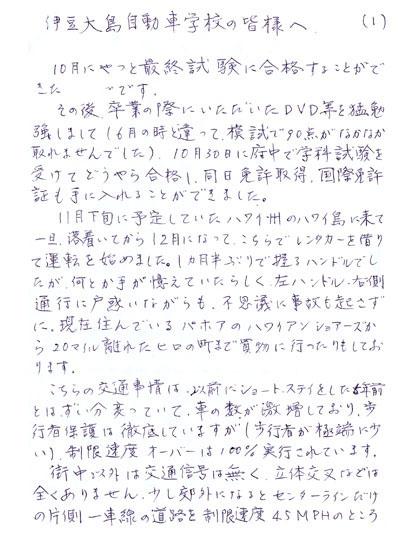 伊豆大島自動車学校の皆様へ (1)
10月にやっと最終試験に合格することがで
きた です。
その後、卒業の際にいただいたDVD等を猛勉
強しまして(6月の時と違って、模試で90点がなかなか
取れませんでした)、10月30日に府中で学科試験を
受けてどうやら合格し、同日免許取得、国際免許
証も手に入れることができました。
11月下旬に予定していたハワイ州のハワイ島に来て
一旦、落着いてから12月になって、こちらでレンタカーを借り
て運転を始めました。1カ月半ぶりで握るハンドルでし
たが、何とか手が憶えていたらしく、左ハンドル、右側
通行に戸惑いながらも、不思議に事故も起さず
に、現在住んでいるパホアのハワイアンショアーズか
ら20マイル離れたヒロの町まで買物に行ったりもしてお
ります。
こちらの交通事情は、以前にショートステイをした5年前
とは、ずい分変っていて、車の数が激増しており、歩
行者保護は徹底していますが(歩行者が極端に少
い)、制限速度オーバーは100%実行されています。
街中以外は交通信号は無く、立体交叉などは
全くありません。少し郊外になるとセンターラインだけ
の片側一車線の道路を制限速度45MPHのところ